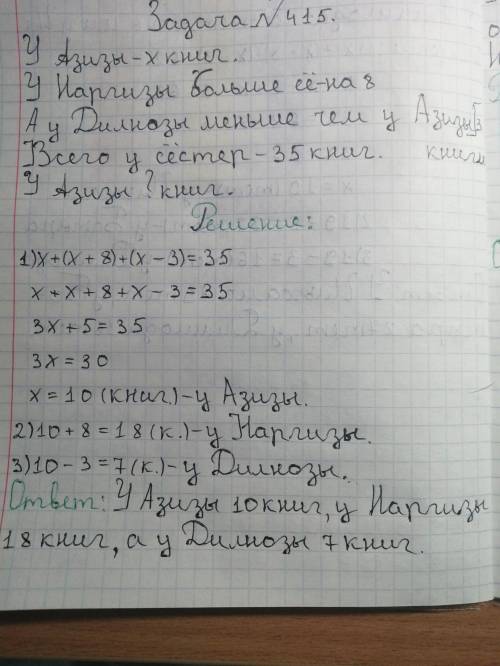 Задача №415.
У Азизы-х книг.
У Наргизы больше её-на 8
А у Дилнозы меньше чем у Азизы 3
Всего у сёстер-35 книг. книги
У Азизы ? книг.
Решение:
1)х+(х+8)+(х-3)=35
х+х+8+х-3=35
3х+5=35
3х=30
х=10(книг.)-у Азизы.
2)10+8=18(к.)-у Наргизы.
3)10-3=7(к.)-у Дилнозы.
Ответ: У Азизы 10 книг, у Наргизы
18 книг, а у Дилнозы 7 книг.